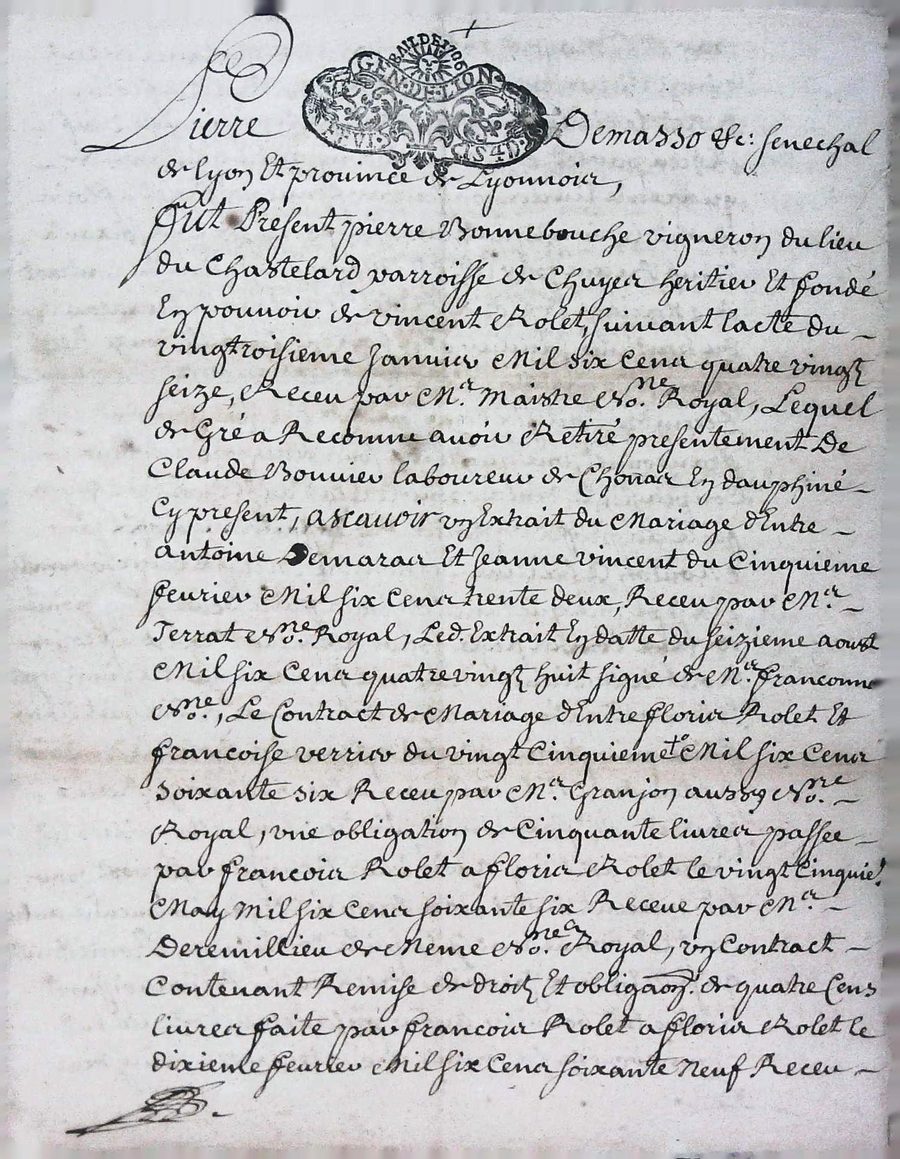 BAIL DE 1706
GEN · DE · LION
Pierre Demasso &c: senechal
de Lyon Et province de Lyonnois,
fut Present pierre Bonnebouche vigneron du lieu
du Chastelard parroisse de Chuyes heritier Et fondé
En pouvoir de vincent Rolet, suivant lacte du
vingtroisieme Janvier Mil six Cens quatre vingt
seize, Receu par Me. Maistre No.re Royal, Lequel
de Gré a Reconnu avoir Retiré presentement De
Claude Bouvier laboureur de Chonas En dauphiné
Cy present, ascavoir un Extrait du Mariage d'Entre
antoine Demaras Et Jeanne vincent du Cinquieme
fevrier Mil six Cens trente deux, Receu par Me.
Terrat No.re Royal, Led. Extrait En datte du seizieme aoust
Mil six Cens quatre vingt huit signé de Me. franconne
No.re, Le Contract de Mariage d'Entre floris Rolet Et
francoise verrier du vingt Cinquieme Mil six Cens
soixante six Receu par Me. Granjon aussy No.re
Royal, une obligation de Cinquante livres passée
par francois Rolet a floris Rolet le vingt Cinquie.
May Mil six Cens soixante six Receue par Me.
Deremillieu de Meme No.re Royal, un Contract
Contenant Remise de droit Et obligaon. de quatre Cens
livres faite par francois Rolet a floris Rolet le
dixieme fevrier Mil six Cens soixante Neuf Receu